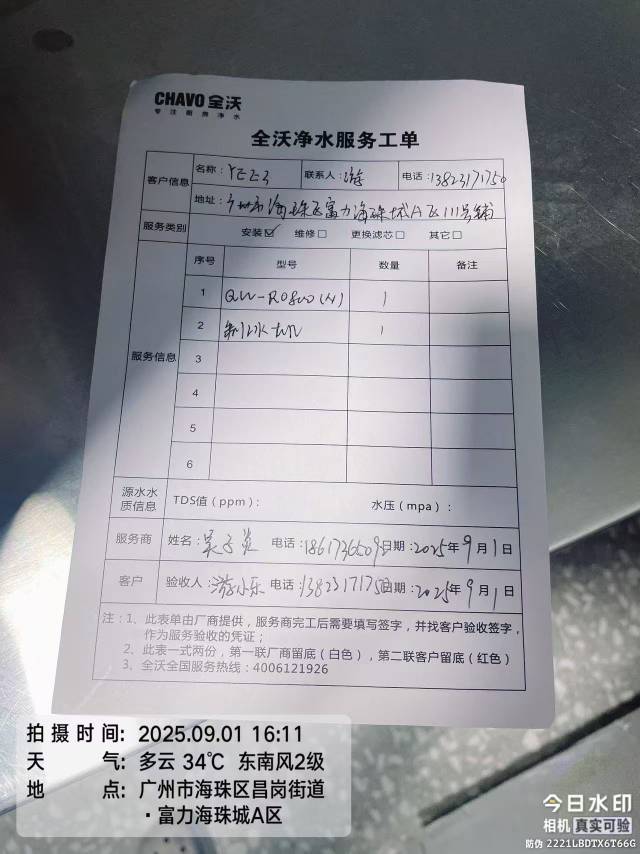 CHAVO 全沃
专注厨房净水
全沃净水服务工单
客户信息 名称: YEE3 联系人: 游 电话: 13823171750
地址: 广州市海珠区富力海珠城A区111号铺
服务类别 安装☑ 维修☐ 更换滤芯☐ 其它☐
服务信息 序号 型号 数量 备注
1 QW-RO800(A) 1
2 制冰机 1
3
4
5
6
源水水质信息 TDS值（ppm）: 水压（mpa）:
服务商 姓名: 吴子 电话: 18617365095 日期: 2025年9月1日
客户 验收人: 游小乐 电话: 13823171750 日期: 2025年9月1日
注：1、此表单由厂商提供，服务商完工后需要填写签字，并找客户验收签字，
作为服务验收的凭证；
2、此表一式两份，第一联厂商留底（白色），第二联客户留底（红色）
3、全沃全国服务热线：4006121926
拍摄时间: 2025.09.01 16:11
天气: 多云 34℃ 东南风2级
地点: 广州市海珠区昌岗街道
·富力海珠城A区
今日水印
相机 真实可验
防伪 2221LBDTX6T66G